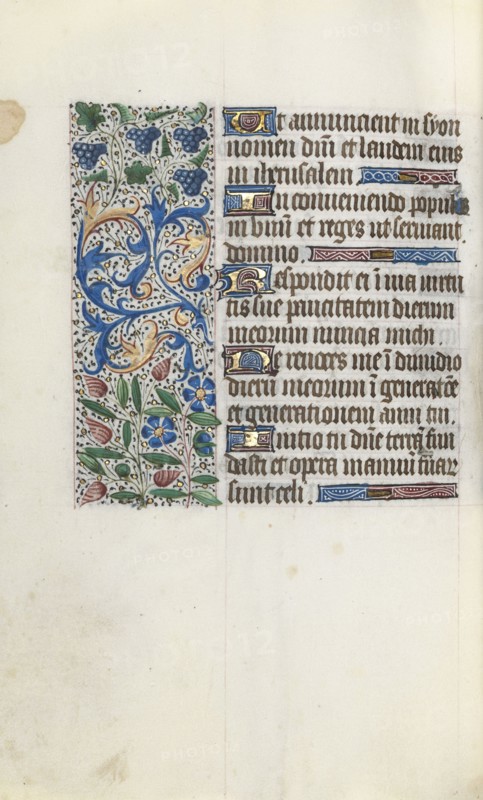 Ut annuncient in syon
nomen dni et laudem eius
in iherusalem
In conueniendo populos
in vnum et reges ut seruiant
domino
Respondit ei i uia uirtu
tis sue paucitatem dierum
meorum nuncia michi.
Ne reuoces me i dimidio
dieru meorum i generatoe
et generationem anni tui.
Initio tu dne terra fun
dasti et opera manuu tuar
sunt celi.